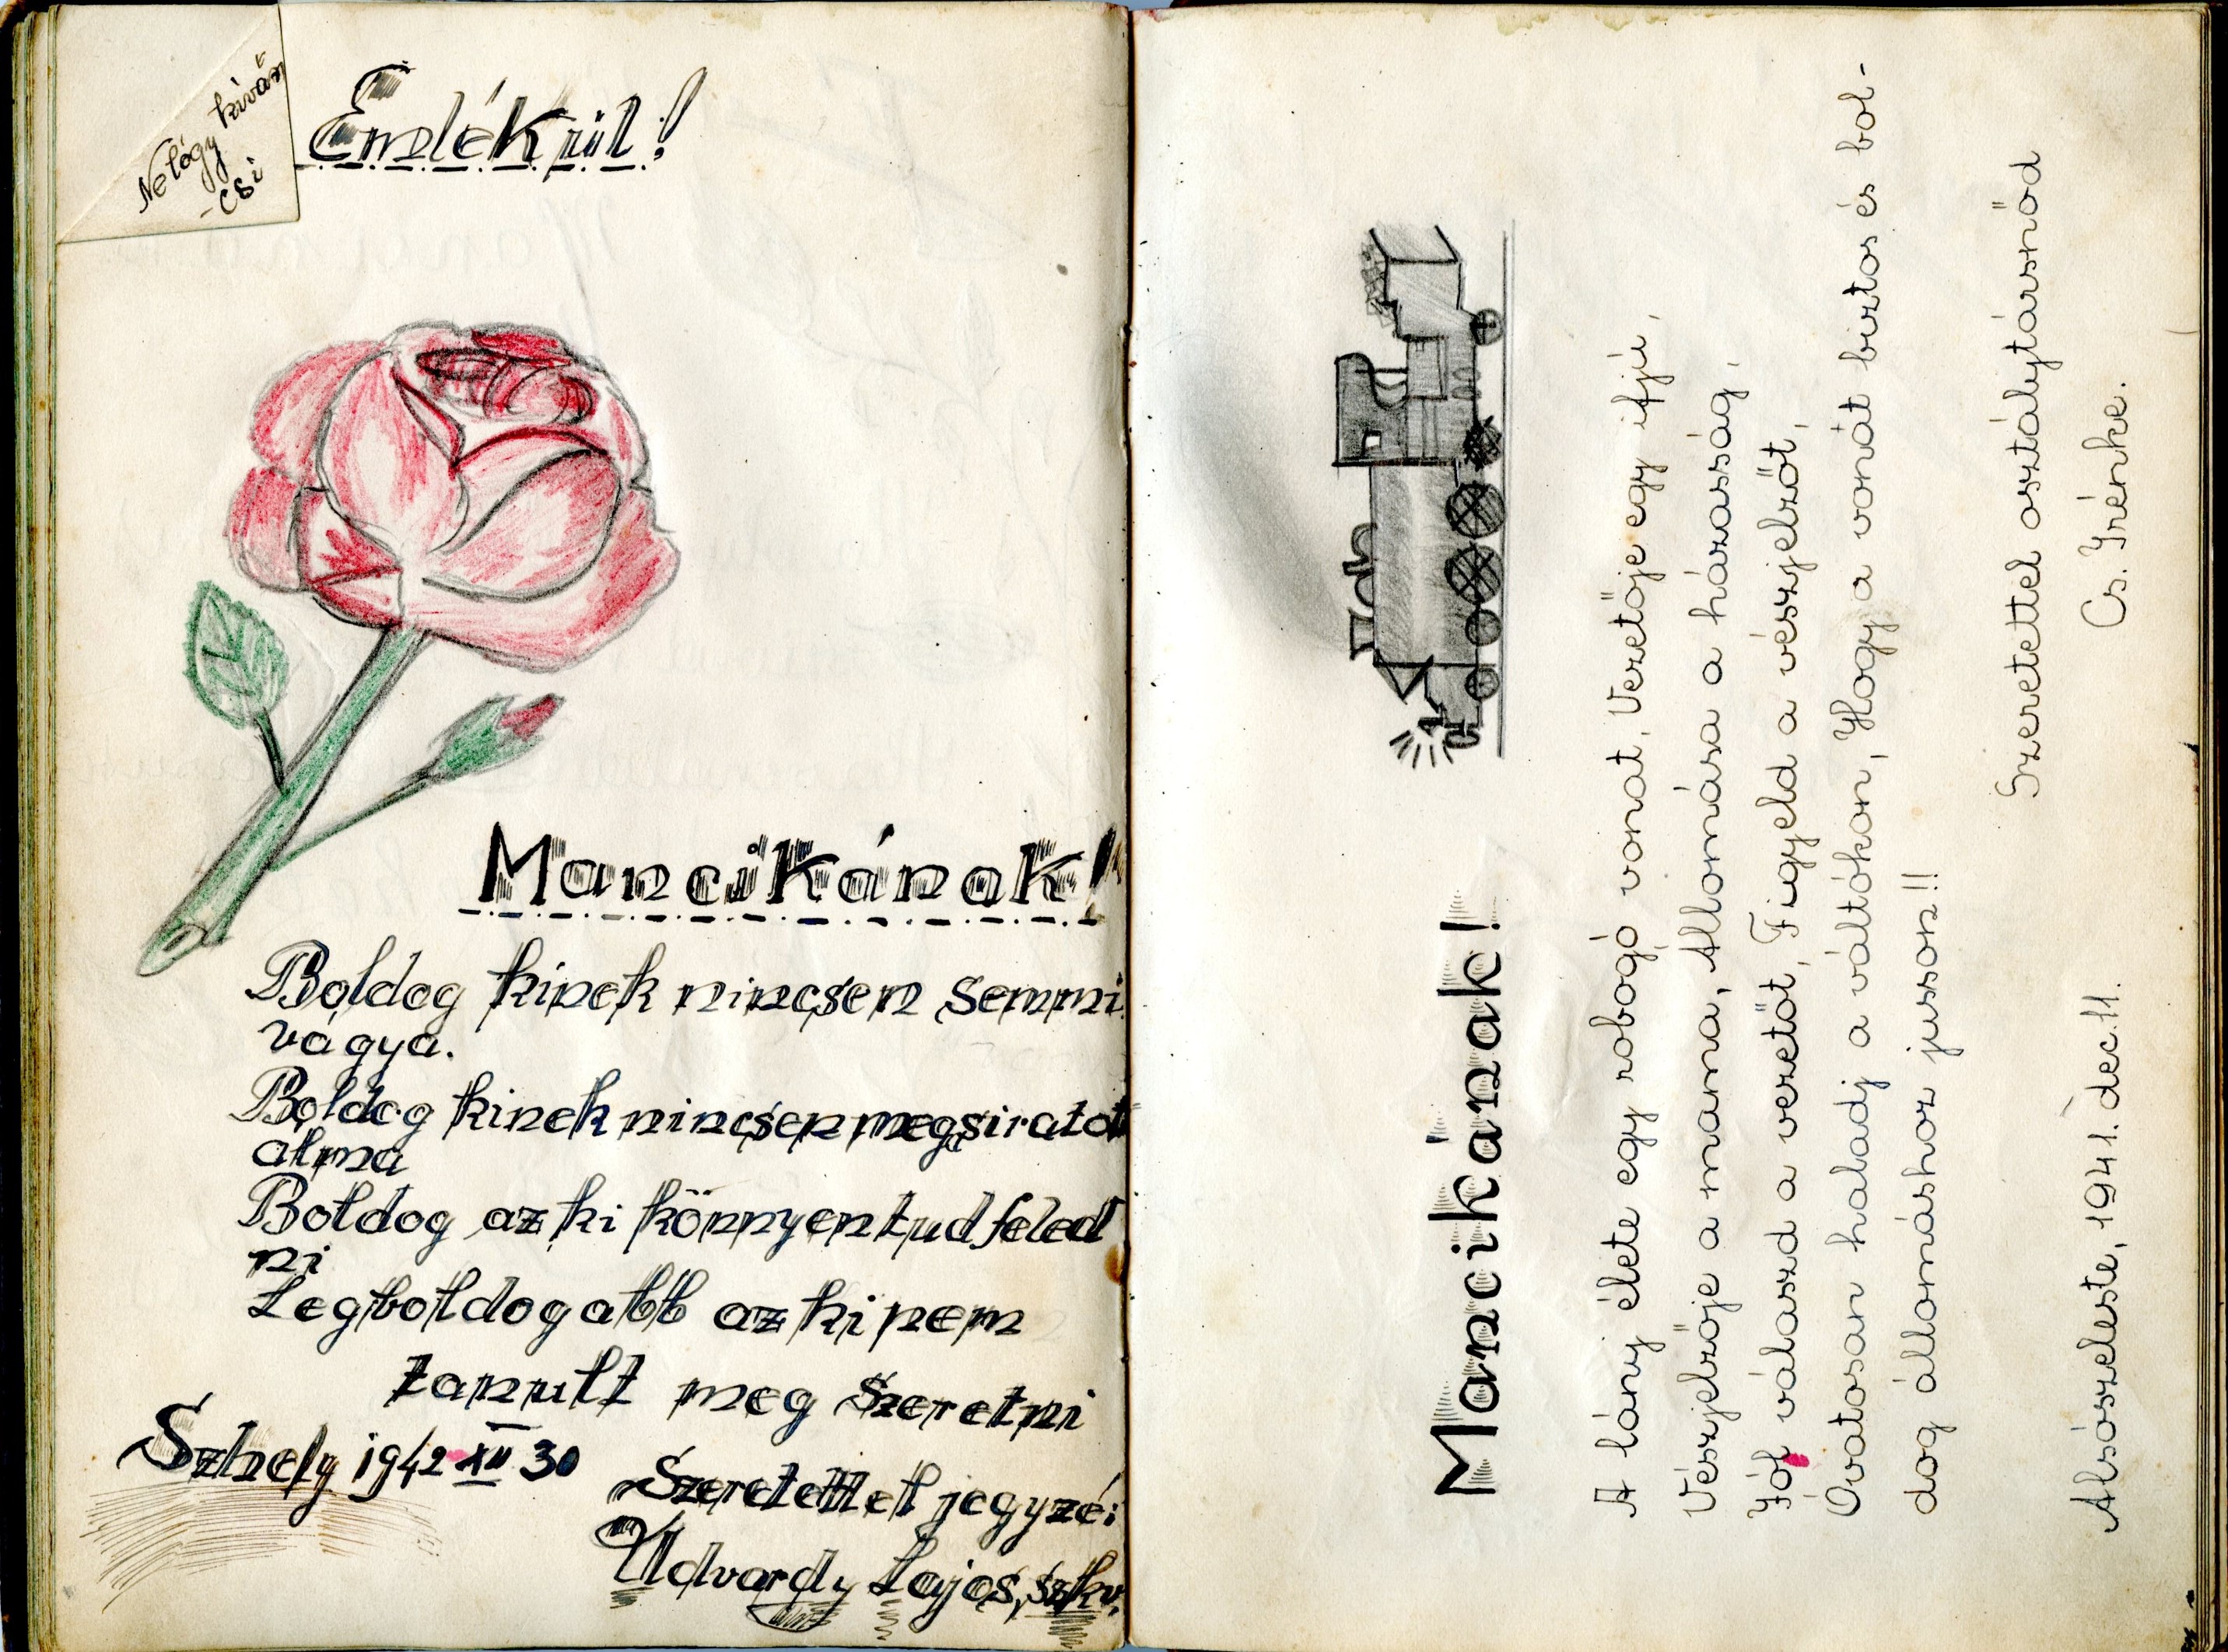 Ne légy kiván
-csi
Emlékül!
Mancikának!
Boldog kinek nincsen semmi
vágya.
Boldog kinek nincsen megsiratot
álma
Boldog az ki könnyen tud feled
ni
Legboldogabb az ki nem
tanult meg szeretni
Szhely 1942 XII 30
Szeretettel jegyzé:
Udvardy Lajos, szkv.
Mancikának!
A lány élete egy robogó vonat, Vezetője egy ifjú,
Vészjelzője a mama, Állomása a házasság,
Jól válaszd a vezetőt, Figyeld a vészjelzőt,
Óvatosan haladj a váltókon, Hogy a vonát biztos és bol-
dog állomáshoz jusson!!
Szeretettel osztálytársnőd
Alsószeleste, 1941. dec. 11.
Cs. Irénke.